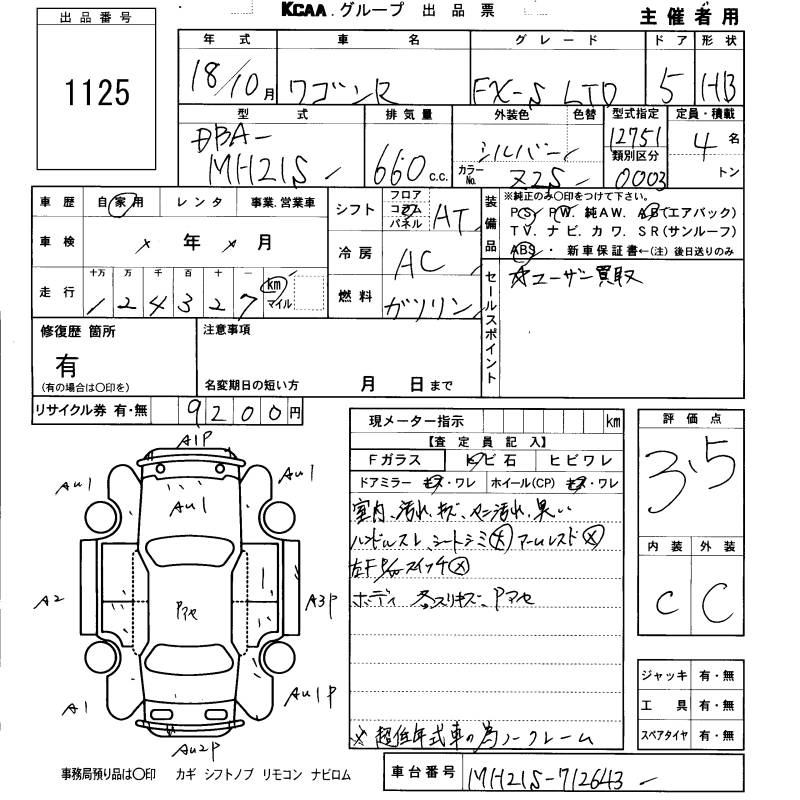 KCAA.グループ 出品票
主催者用
出品番号
1125
年式 車名 グレード ドア 形状
18/10月 ワゴンR FX-S LTD 5 HB
型式 排気量 外装色 色替 型式指定 定員・積載
DBA- 12751
類別区分
MH21S 660 c.c. シルバー カラーNo. Z2S 0003 4名
トン
車歴 自家用 レンタ 事業.営業車
車検 年 月
走行 十万 万 千 百 十 一
124327 km マイル
シフト フロア コラム パネル AT
冷房 AC
燃料 ガソリン
装備品
※純正のみ○印をつけて下さい。
PS. PW. 純AW. AB(エアバック)
TV. ナビ. カワ. SR(サンルーフ)
ABS・ 新車保証書←(注) 後日送りのみ
セールスポイント
☆ユーザー買取
修復歴 箇所
有
(有の場合は○印を)
注意事項
名変期日の短い方 月 日まで
リサイクル券 有・無 9200円
現メーター指示 km
【査定員記入】
Fガラス トビ石 ヒビワレ
ドアミラー キズ・ワレ ホイール(CP) キズ・ワレ
室内、汚れ、キズ、ヤニ汚れ、臭い
ハンドルスレ、シートシミ大 アームレスト×
左F P/W スイッチ×
ボディ 各スリキズ、Pマセ
※超低年式車の為ノークレーム
評価点
3.5
内装 外装
C C
A1P
AU1 AU1
AU1
A2 Pマセ A3P
A1 AU1P
AU2P
ジャッキ 有・無
工具 有・無
スペアタイヤ 有・無
事務局預り品は○印 カギ シフトノブ リモコン ナビロム
車台番号 MH21S-712643